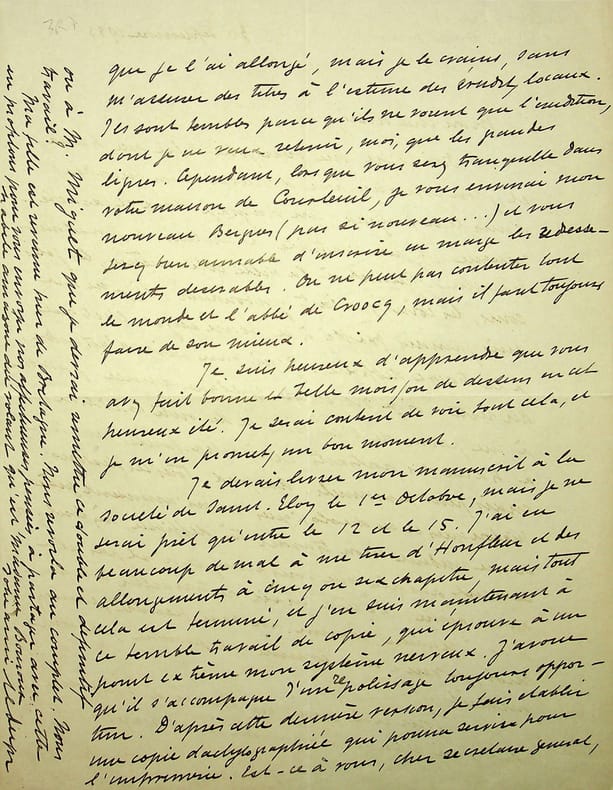 que je l'ai allongé, mais je le crains, sans
m'assurer des titres à l'estime des érudits locaux.
Ils sont terribles parce qu'ils ne voient que l'érudition,
dont je ne veux retenir, moi, que les grandes
lignes. Cependant, lorsque vous serez tranquille dans
votre maison de Courteuil, je vous enverrai mon
nouveau Bergues (pas si nouveau...) et vous
serez bien aimable d'inscrire en marge les redresse-
ments désirables. On ne peut pas contenter tout
le monde et l'abbé de Croocq, mais il faut toujours
faire de son mieux.
Je suis heureux d'apprendre que vous
avez fait bonne et belle moisson de dessins en cet
heureux été. Je serai content de voir tout cela, et
je m'en promets un bon moment.
Je devais livrer mon manuscrit à la
société de Saint-Eloy le 1er Octobre, mais je ne
serai prêt qu'entre le 12 et le 15. J'ai eu
beaucoup de mal à me tirer d'Honfleur et des
allongements à cinq ou six chapitres, mais tout
cela est terminé, et j'en suis maintenant à
ce terrible travail de copie, qui éprouve à un
point extrême mon système nerveux. J'avoue
qu'il s'accompagne d'un repolissage toujours oppor-
tun. D'après cette dernière version, je fais établir
une copie dactylographiée qui pourra servir pour
l'imprimerie. Est-ce à vous, cher secrétaire général,
ou à M. Miguet que je devrai remettre ce double et définitif
travail?
Ma fille est revenue hier de Bretagne. Nous revoilà au complet. Nous
en profitons pour vous envoyer nos affectueuses pensées, à partager avec cette
amazone du volant qu'est Madame